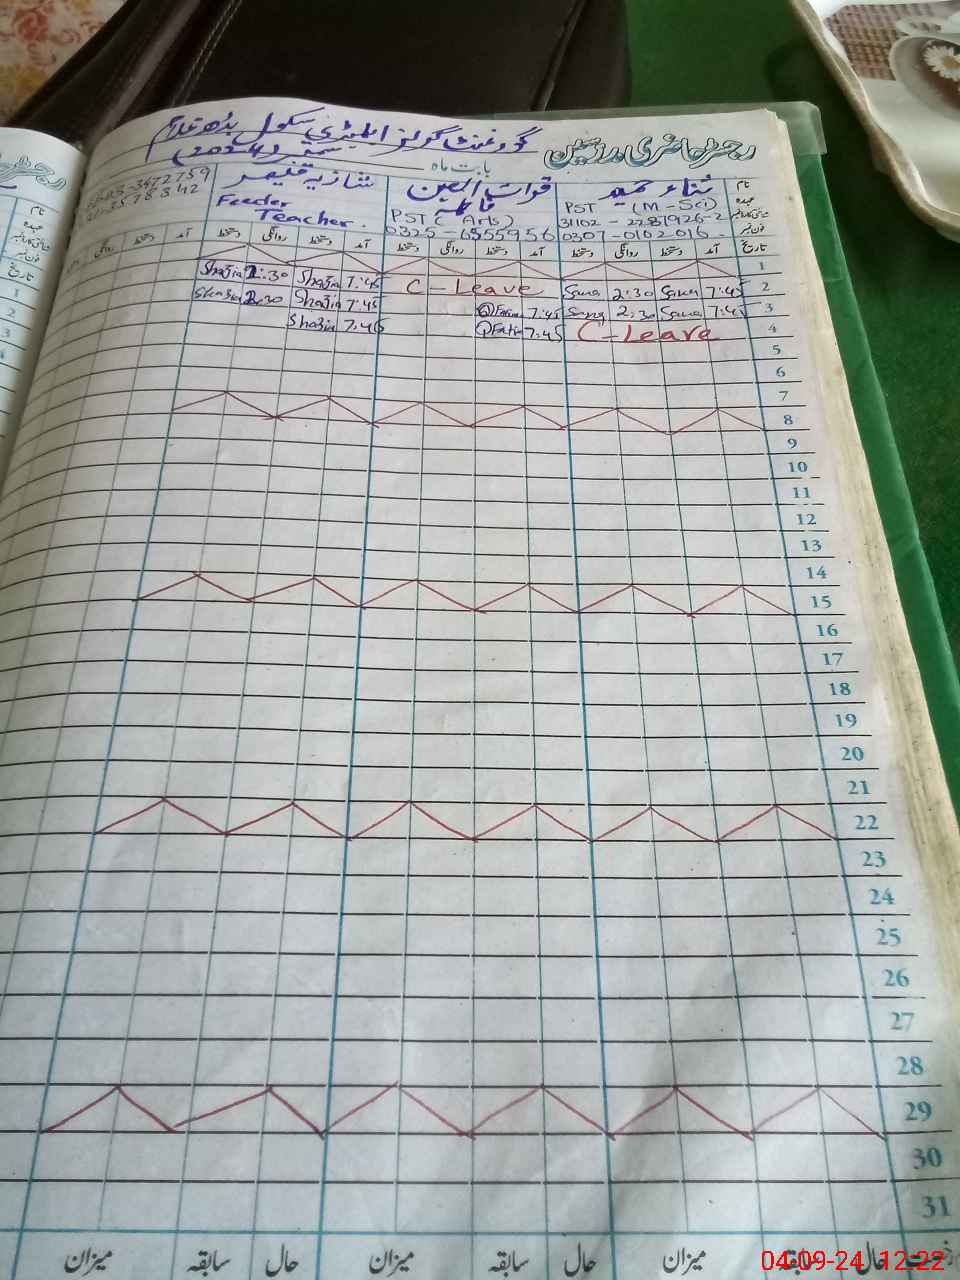 رجسٹر حاضری مدرسین
گورنمنٹ گرلز ایلیمنٹری سکول
بابت ماہ ستمبر (2024)
نام
ثناء حمید
قرات العین فاطمہ
شازیہ
عہدہ
PST (M-Sci)
PST (Arts)
Feeder
Teacher.
31102-2281926-2
فون نمبر
0307-0102016
0325-6555956
تاریخ آمد دستخط روانگی دستخط آمد دستخط روانگی دستخط آمد دستخط روانگی دستخط آمد
1
2 7:45 Sana 2:30 Sana C-Leave 7:45 Shazia 2:30 Shazia
3 7:45 Sana 2:30 Sana 7:45 7:45 Shazia 2:30 Shazia
4 C-Leave 7:45 7:45 Shazia
5
6
7
8
9
10
11
12
13
14
15
16
17
18
19
20
21
22
23
24
25
26
27
28
29
30
31
حال سابقہ میزان حال سابقہ میزان حال سابقہ میزان
04-09-24 12:22